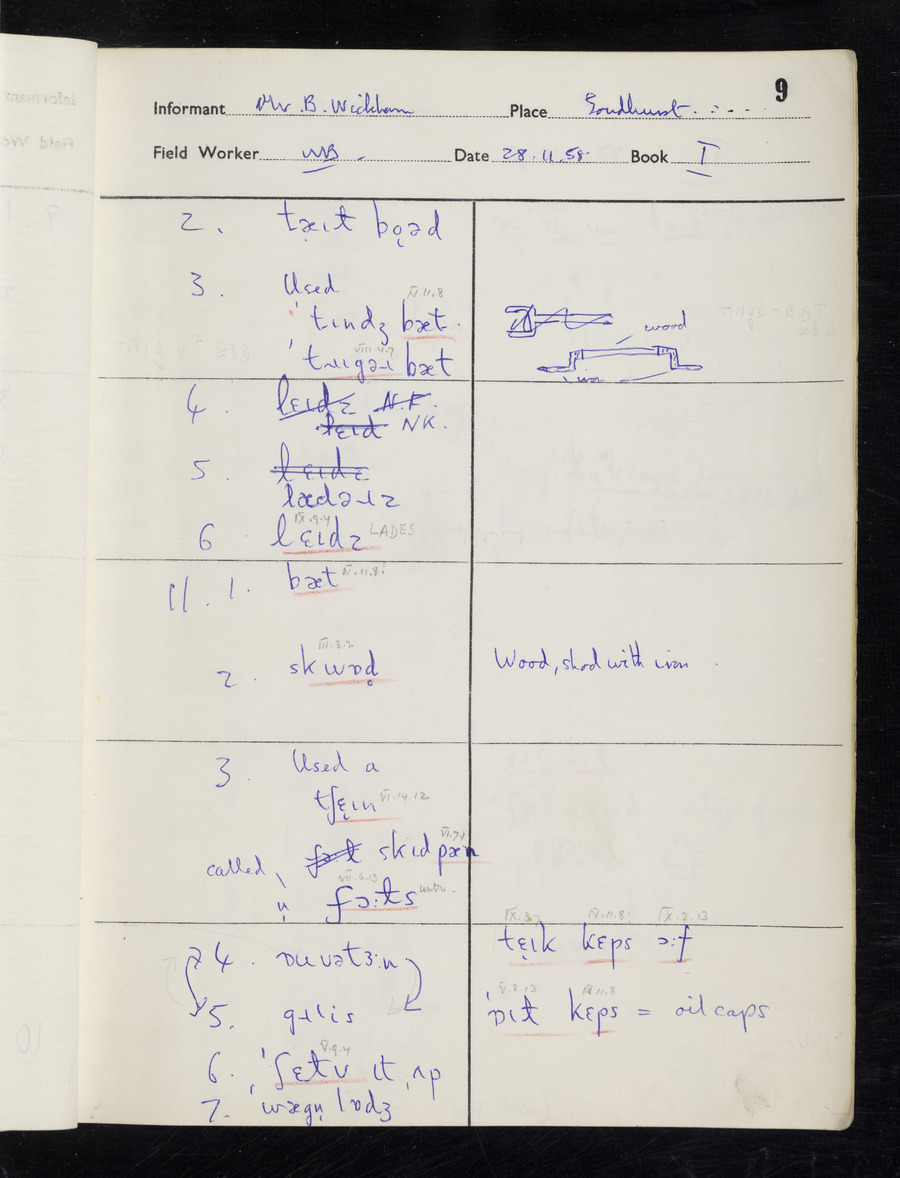 9
Informant Mr. B. Wickham Place Goudhurst
Field Worker WB Date 28.11.58 Book I
2. tæɪɫ bo̜əd
3. Used
VI.11.8
ˈtɪndʒ bæt.
VIII.4.7
ˈtɹɪgəɹ bæt
wood
iron
4. lɛɪdz N.K.
lɛɪd NK.
5. lɛɪdz
lædəɹz
IX.9.4
6 lɛɪdz LADES
11. 1. bæt VI.11.8!
III.3.2
2. skwɒd̥
Wood, shod with iron
3. Used a
tʃɛ̜ɪn VI.14.12
called, skɪdpæn
VII.6.13
" fɔ:ts
IX.3.7 IV.11.8! IX.2.13
tɛ̜ɪk kɛps ɔ:f
4. ɒuvətɜ:n
V.2.13 IV.11.8
ˈɒɪɫ kɛps = oil caps
5.
V.9.4
6. ˈʃɛtʋ ɪt ˌʌp
7. ˈwægn̩ lɒdʒ